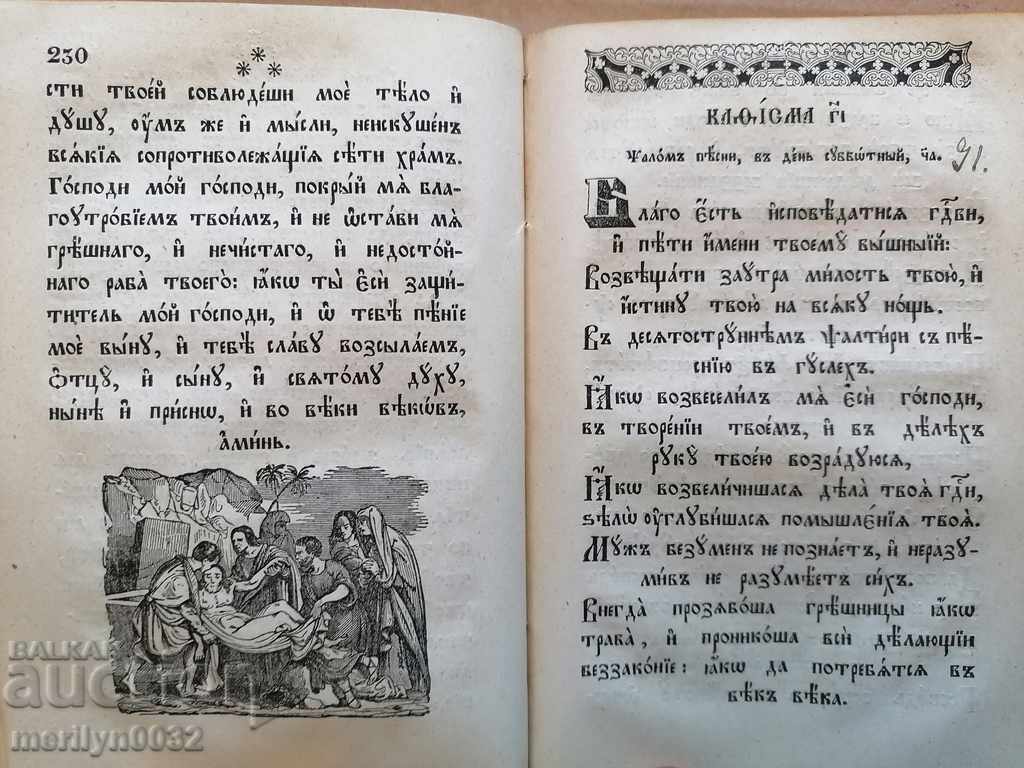 230
сти твоей соблюдеши мое тѣло и
душу, оумъ же и мысли, неискушенъ
всѧкіѧ сопротиволежащіѧ сѣти храмъ.
Господи мой господи, покрый мѧ бла-
гоутробіемъ твоимъ, и не ѡстави мѧ
грѣшнаго, и нечистаго, и недостой-
наго раба твоего: ꙗкѡ ты єси защи-
титель мой господи, и ѡ тебѣ пѣніе
мое выну, и тебѣ славу возсылаемъ,
Ѻтцу, и сыну, и свѧтому духу,
нынѣ и приснѡ, и во вѣки вѣкѡвъ,
Аминь.
КАѲІСМА г҃і
Ѱаломъ пѣсни, въ день суббѡтный, ч҃а. 91.
Благо єсть исповѣдатисѧ гд҇ви,
и пѣти имени твоему вышный:
Возвѣщати заутра милость твою, и
истину твою на всѧку нощь.
Въ десѧтоструннѣмъ ѱалтири съ пѣ-
снію въ гуслехъ.
Ꙗкѡ возвеселилъ мѧ єси господи,
въ твореніи твоемъ, и въ дѣлѣхъ
руку твоею возрадуюсѧ,
Ꙗкѡ возвеличишасѧ дѣла твоѧ гд҇и,
ѕѣлѡ оуглубишасѧ помышленіѧ твоѧ.
Мужъ безуменъ не познаетъ, и неразу-
мивъ не разумѣетъ сихъ.
Внегда прозѧбоша грѣшницы ꙗкѡ
трава, и проникоша вси дѣлающіи
беззаконіе: ꙗкѡ да потребѧтсѧ въ
вѣкъ вѣка.
BALKAN
auction
merilyn0032